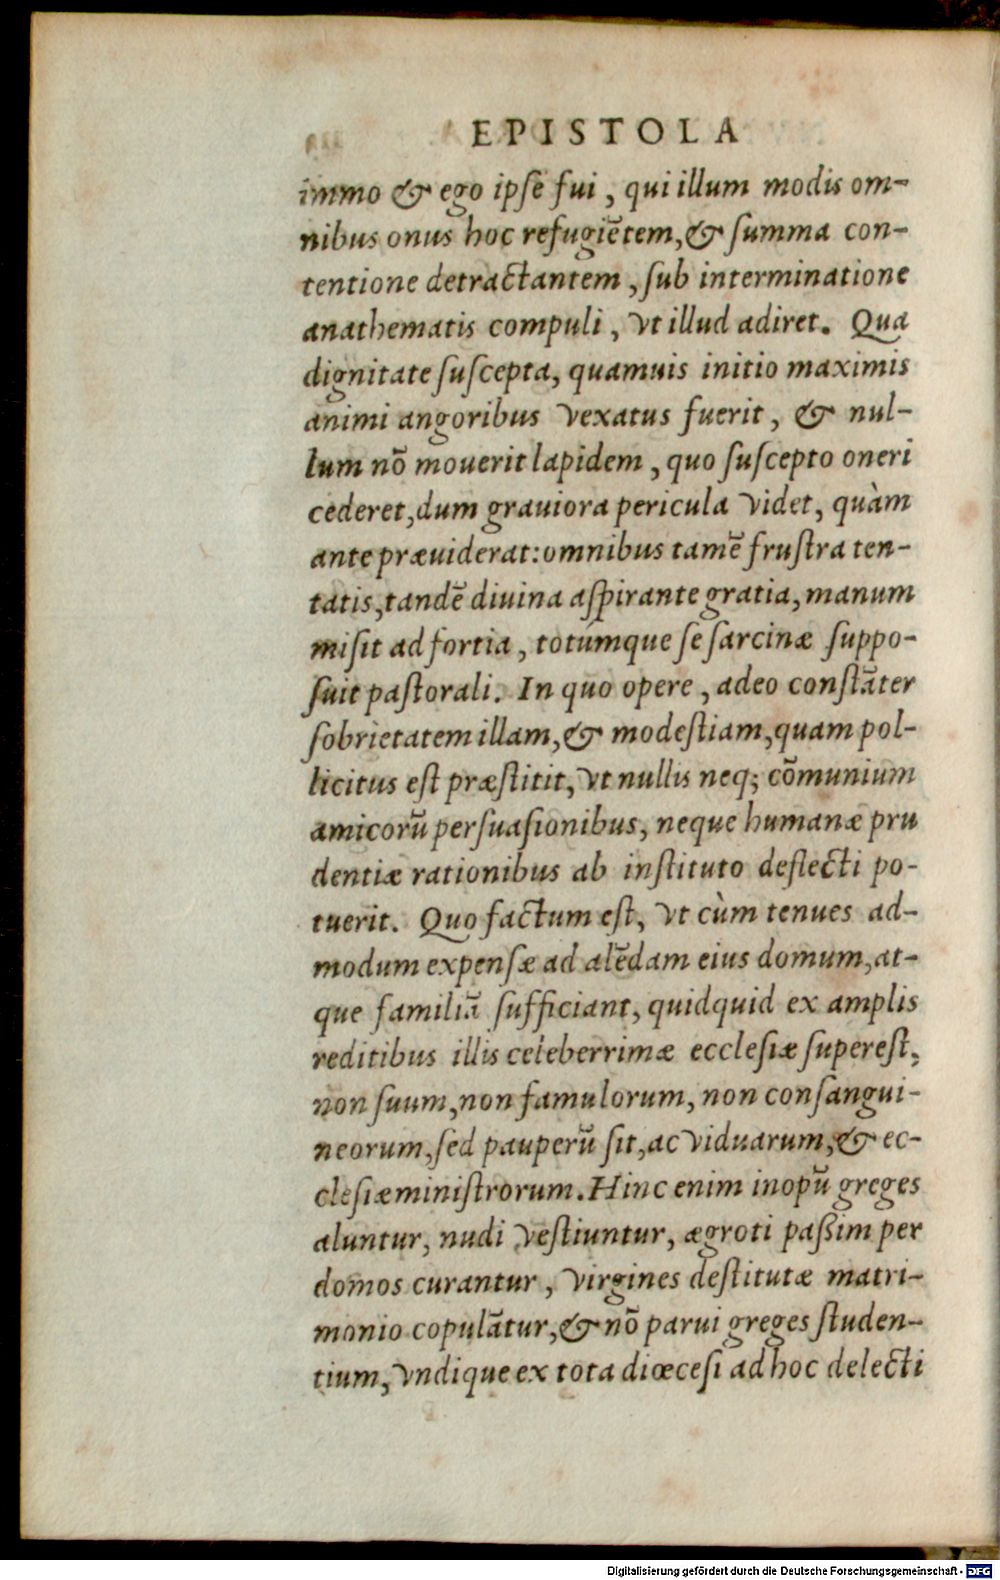 EPISTOLA
immo & ego ipſe fui, qui illum modis om-
nibus onus hoc refugiētem, & ſumma con-
tentione detractantem, ſub interminatione
anathematis compuli, vt illud adiret. Qua
dignitate ſuſcepta, quamuis initio maximis
animi angoribus vexatus fuerit, & nul-
lum nō mouerit lapidem, quo ſuſcepto oneri
cederet, dum grauiora pericula videt, quàm
ante præuiderat: omnibus tamē fruſtra ten-
tatis, tandē diuina aſpirante gratia, manum
miſit ad fortia, totúmque ſe ſarcinæ ſuppo-
ſuit paſtorali. In quo opere, adeo conſtāter
ſobrietatem illam, & modeſtiam, quam pol-
licitus eſt præſtitit, vt nullis neq; cōmunium
amicorū perſuaſionibus, neque humanæ pru
dentiæ rationibus ab inſtituto deflecti po-
tuerit. Quo factum eſt, vt cùm tenues ad-
modum expenſæ ad alēdam eius domum, at-
que familiā ſufficiant, quidquid ex amplis
reditibus illis celeberrimæ eccleſiæ ſupereſt,
non ſuum, non famulorum, non conſangui-
neorum, ſed pauperū ſit, ac viduarum, & ec-
cleſiæ miniſtrorum. Hinc enim inopū greges
aluntur, nudi veſtiuntur, ægroti paßim per
domos curantur, virgines deſtitutæ matri-
monio copulātur, & nō parui greges ſtuden-
tium, vndique ex tota diœceſi ad hoc delecti
Digitalisierung gefördert durch die Deutsche Forschungsgemeinschaft - DFG